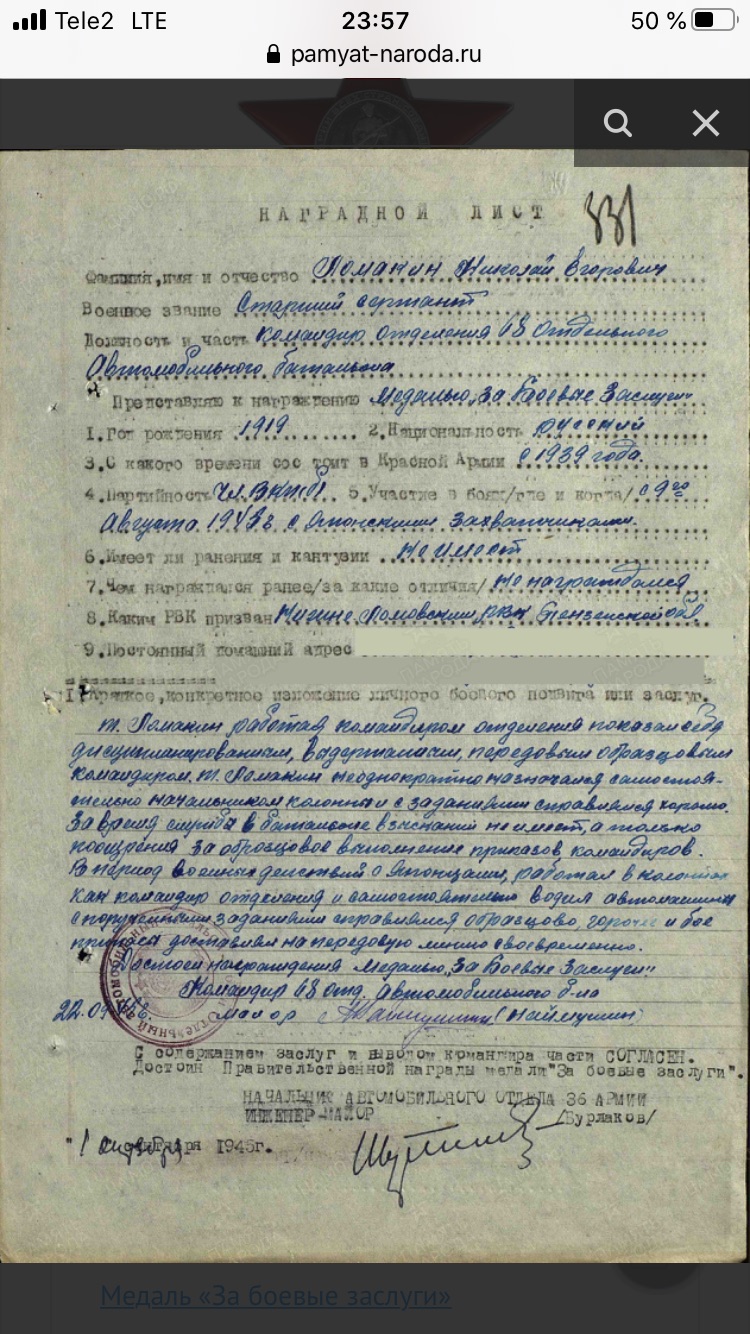 Tele2 LTE
23:57
50 %
pamyat-naroda.ru
НАГРАДНОЙ ЛИСТ
331
Фамилия,имя и отчество Ломакин Николай Егорович
Военное звание Старший сержант
Должность и часть командир отделения 68 отдельного
Автомобильного батальона
Представляю к награждению Медалью "За Боевые Заслуги"
1.Год рождения 1919 2.Национальность русский
3.С какого времени состоит в Красной Армии с 1939 года.
4.Партийность Чл. ВКП(б) 5.Участие в боях/где и когда/ с 9го
Августа 1945 г с Японскими захватчиками.
6.Имеет ли ранения и кантузии не имеет
7.Чем награждался ранее/за какие отличия/ не награждался
8.Каким РВК призван Нижне-Ломовским рвк Пензенской обл
9.Постоянный домашний адрес
I.Краткое,конкретное изложение личного боевого подвига или заслуг.
т. Ломакин работая командиром отделения показал себя
дисциплинированым, выдержаным, передовым образцовым
командиром. т. Ломакин неоднократно назначался самостоя-
тельно начальником колонны и с заданиями справлялся хорошо.
За время службы в батальоне взысканий не имеет, а только
поощрения за образцовое выполнение приказов командиров.
В период военных действий с Японцами, работал в колоннах
как командир отделения и самостоятельно водил автомашину
с порученными заданиями справлялся образцово, горючее и бое
припасы доставлял на передовую линию своевременно.
Достоен награждения Медалью "За Боевые Заслуги"
Командир 68 отд. Автомобильного б-на
майор Наймушин
С содержанием заслуг и выводом командира части СОГЛАСЕН.
Достоин Правительственной награды медали"За боевые заслуги".
НАЧАЛЬНИК АВТОМОБИЛЬНОГО ОТДЕЛА 36 АРМИИ
ИНЖЕНЕР-МАЙОР /Бурлаков/
"1 1945г.
Медаль «За боевые заслуги»